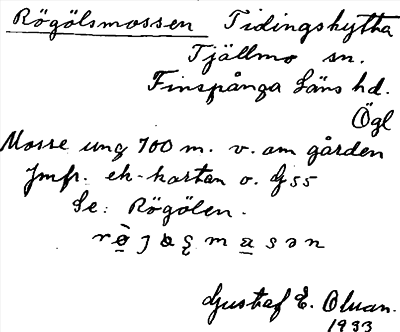 Rögölsmossen Tidingshytta
Tjällmo sn.
Finspånga Läns hd.
Ögl
Mosse ung 700 m. v. om gården
Jmfr. ek-kartan o. G 55
Se: Rögölen.
Gustaf E. Oluan.
1933